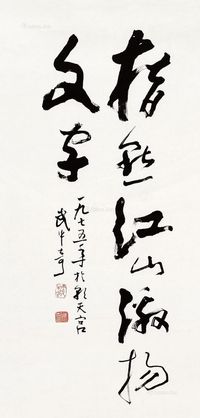 指点江山激扬
文字
一九七五年于朝天宫
武中奇